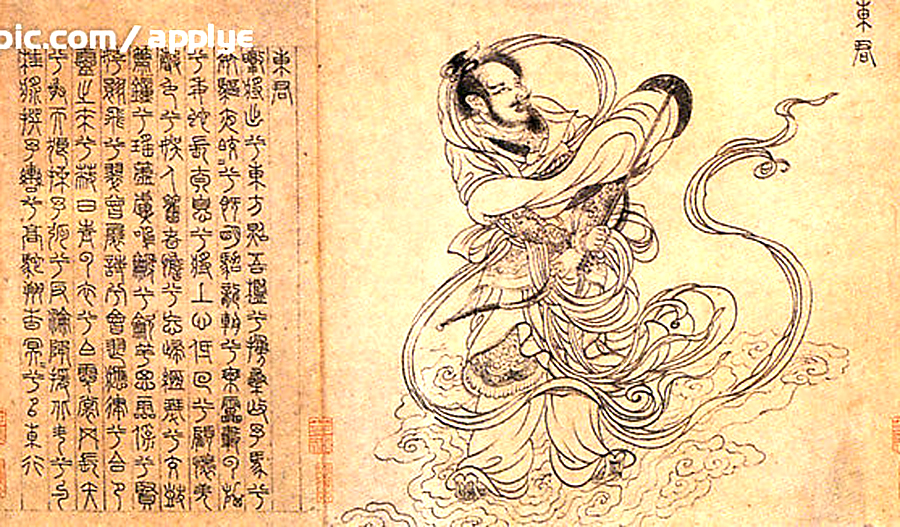 pic.com/applye
東君
東君
暾將出兮東方照吾檻兮扶桑撫予馬兮
安驅夜皎兮既明駕龍輈兮乘靁載雲旗
兮委蛇長太息兮將上心低回兮顧懷羌
聲色兮娛人觀者憺兮忘歸緪瑟兮交鼓
簫鐘兮瑤簴鳴篪兮龡竽思靈保兮賢
姱翾飛兮翠曾展詩兮會舞應律兮合節
靈之來兮蔽日青雲衣兮白霓裳舉長矢
兮射天狼操予弧兮反淪降援北斗兮酌
桂漿撰予轡兮高駝翔杳冥兮以東行